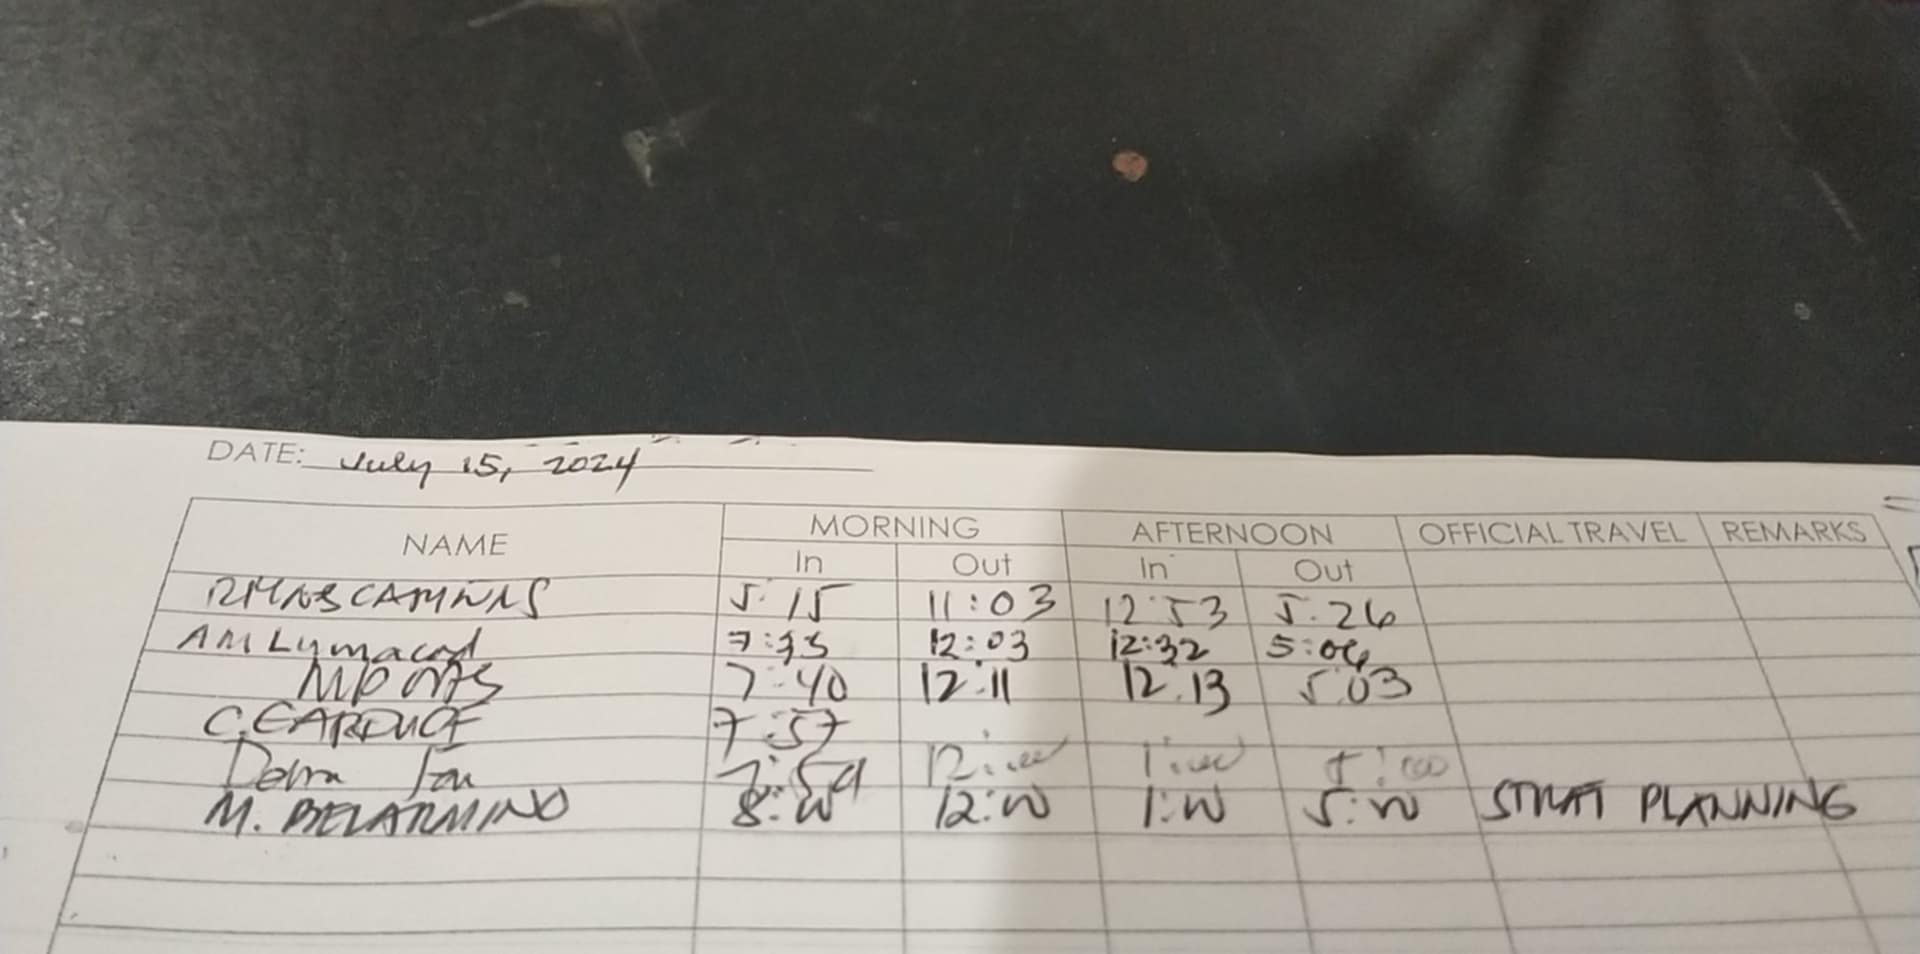 DATE: July 15, 2024
NAME MORNING AFTERNOON OFFICIAL TRAVEL REMARKS
In Out In Out
5:15 11:03 12:53 5:26
AM Lymacod 7:35 12:03 12:32 5:06
7:40 12:11 12:13 5:03
7:57
7:59 12:00 1:00 5:00
M. BELARMINO 8:00 12:00 1:00 5:00 STRAT PLANNING